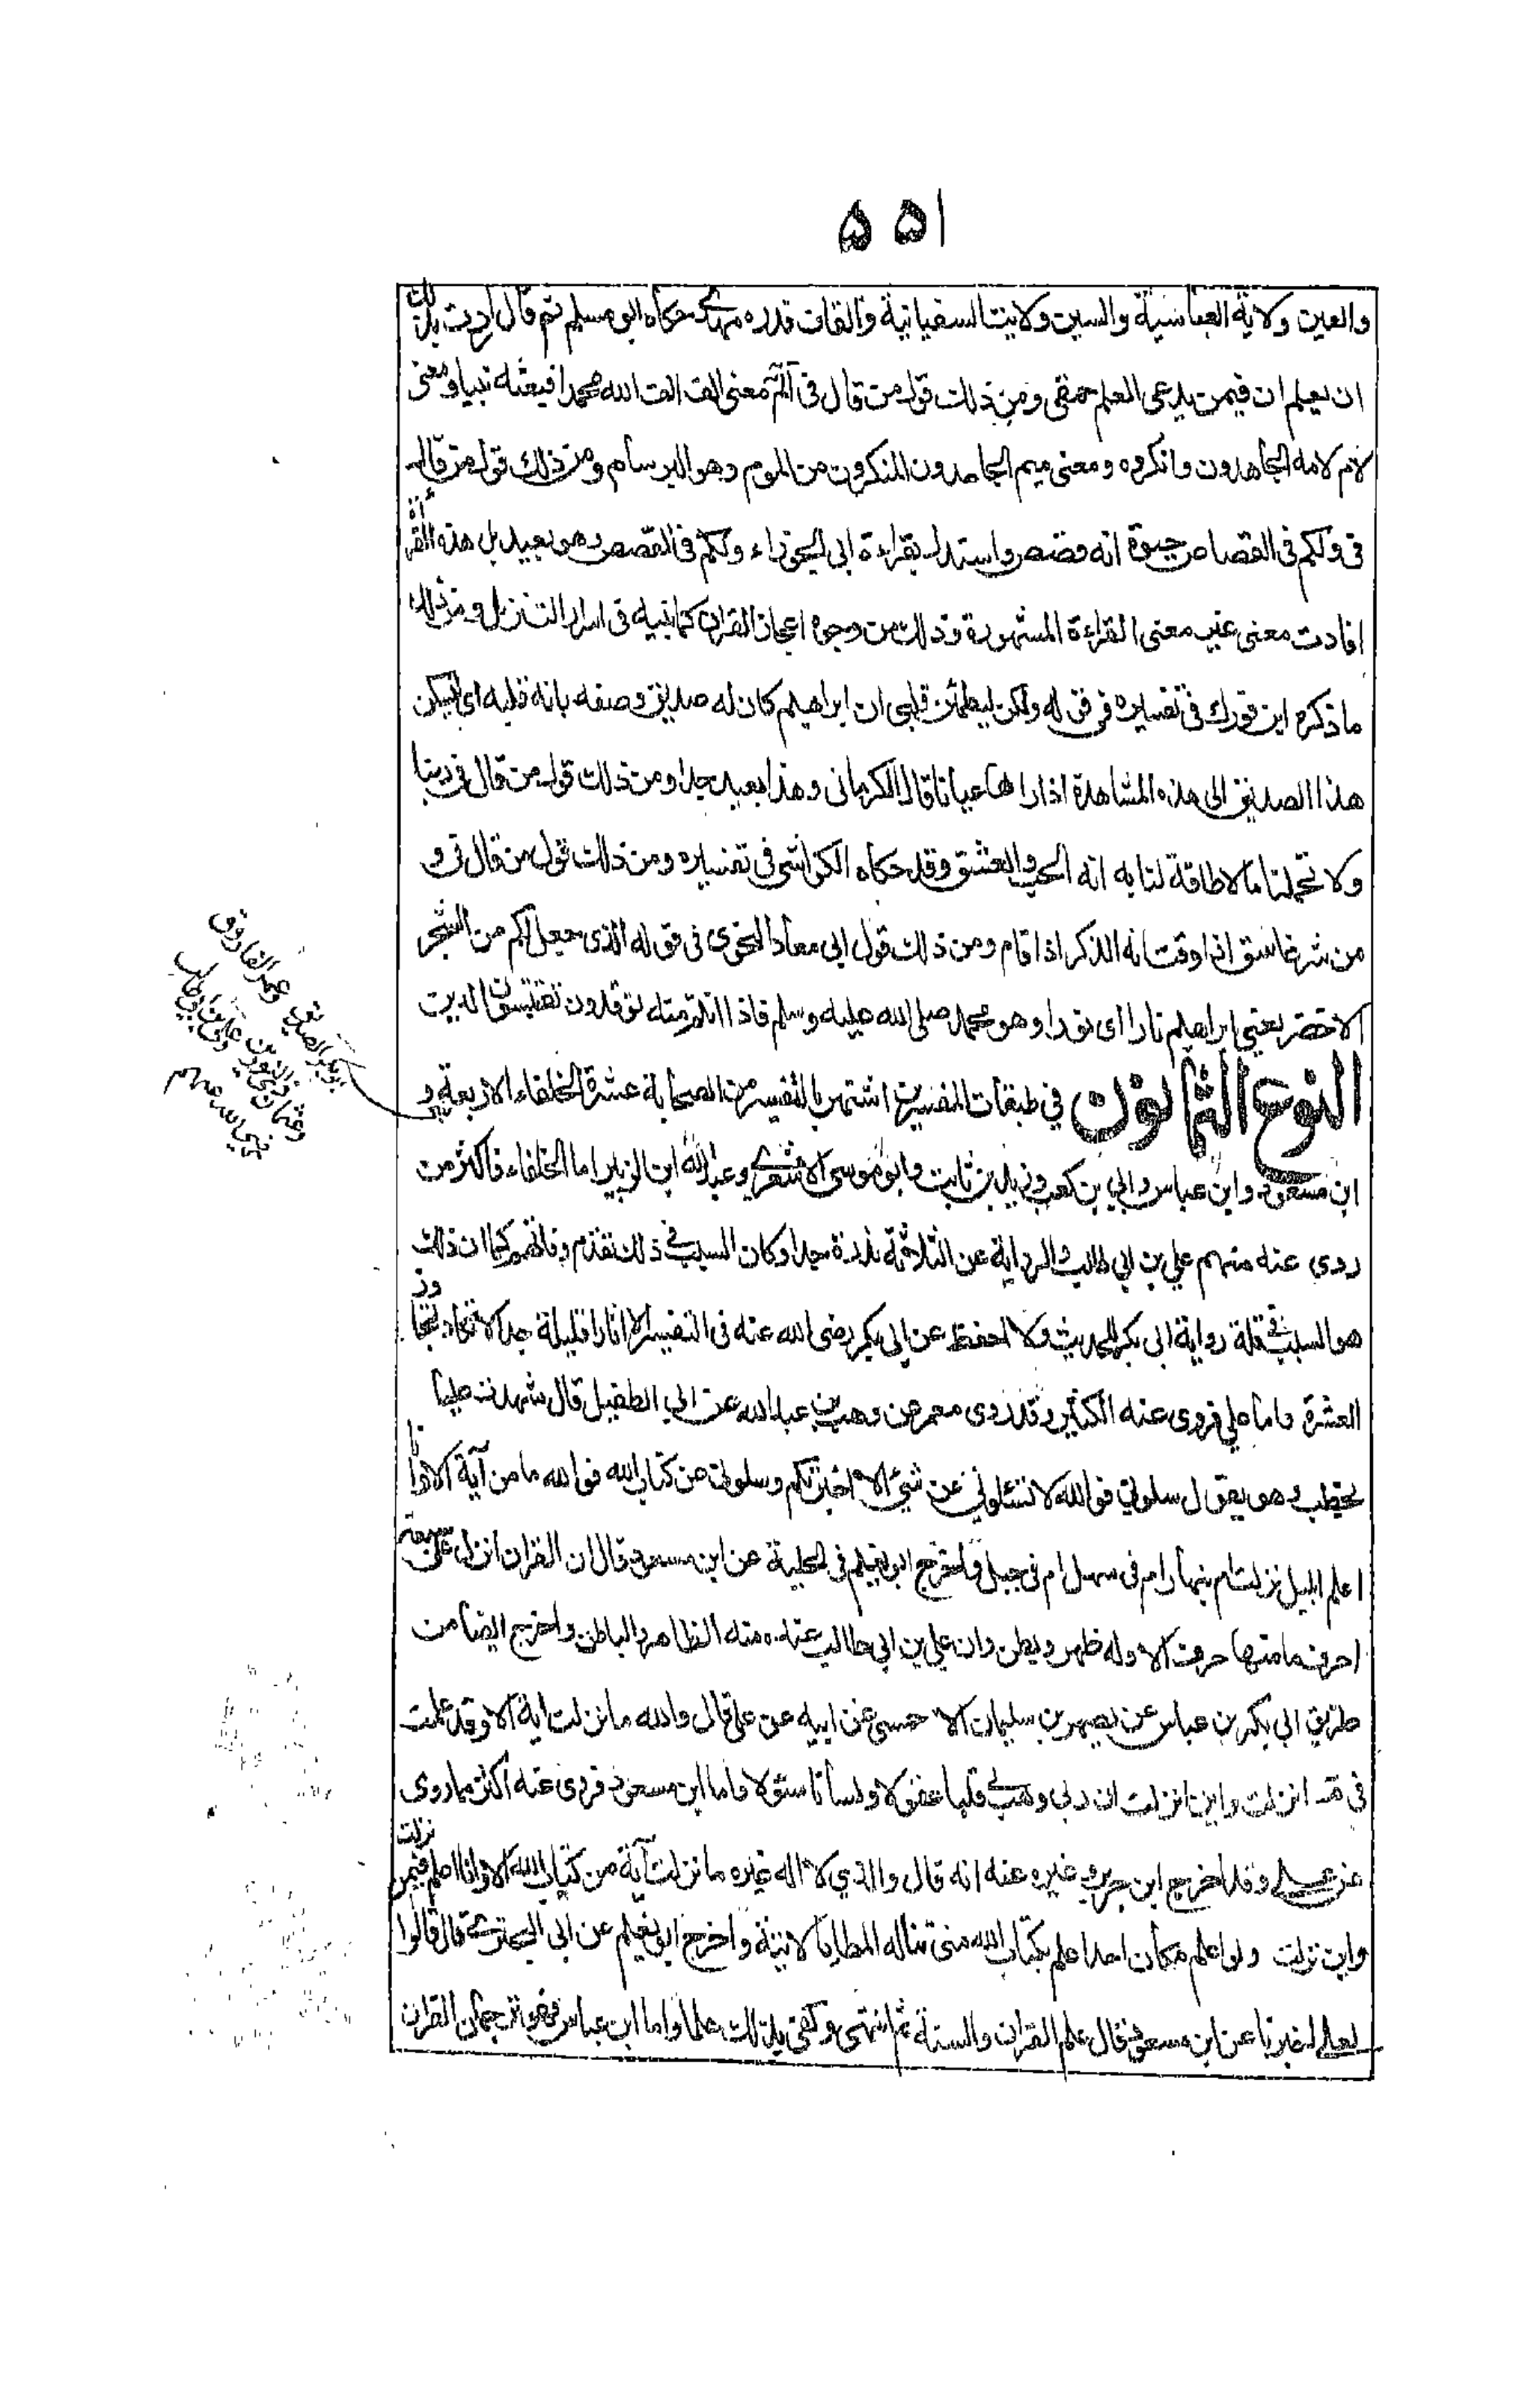 ٥٥١
والعين ولاية العباسية والسين ولايت السفيانية والقاف قدره مهدى حكاه ابو مسلم ثم قال اردت بذلك
ان يعلم ان فيمن يدعى العلم حمقى ومن ذلك قول من قال فى آلٓمٓ معنى الف الف الله محمدا فبعثه نبيا ومعنى
لام لامه الجاهدون وانكروه ومعنى ميم الجاحدون المنكرون من الموم وهو البرسام ومن ذلك قول من قال
فى ولكم فى القصاص حيوة انه قصص واستدل بقراءة ابى الجوزاء ولكم فى القصص وهو بعيد بل هذه القرأة
افادت معنى غير معنى القراءة المشهورة وذلك من وجوه اعجاز القران كما نبيه فى اسرار التنزيل ومن ذلك
ما ذكره ابن فورك فى تفسيره فى قوله ولكن ليطمئن قلبى ان ابراهيم كان له صديق وصفه بانه قلبه اى ليسكن
هذا الصديق الى هذه المشاهدة اذا راها عيانا قال الكرمانى وهذا بعيد جدا ومن ذلك قول من قال فى ربنا
ولا تحملنا ما لا طاقة لنا به انه الحب والعشق وقد حكاه الكواشى فى تفسيره ومن ذلك قول من قال فى و
من شر غاسق اذا وقب انه الذكر اذا قام ومن ذلك قول ابى معاذ النحوى فى قوله الذى جعل لكم من الشجر
الاخضر يعنى ابراهيم نارا اى نورا وهو محمد صلى الله عليه وسلم فاذا انتم منه توقدون تقتبسون الدين
النوع الثمانون في طبقات المفسرين اشتهر بالتفسير من الصحابة عشرة الخلفاء الاربعة و
ابن مسعود وابن عباس وابي بن كعب وزيد بن ثابت وابو موسى الاشعرى وعبدالله ابن الزبير اما الخلفاء فاكثر من
روى عنه منهم علي بن ابي طالب والرواية عن الثلاثة نذرة جدا وكان السبب فى ذلك تقدم وفاتهم كما ان ذلك
هو السبب فى قلة رواية ابى بكر للحديث ولا احفظ عن ابى بكر رضى الله عنه فى التفسير الا اثارا قليلة جدا لا تكاد تتجاوز
العشرة واما علي فروى عنه الكثير وقد روى معمر عن وهب بن عبد الله عن ابي الطفيل قال شهدت عليا
يخطب وهو يقول سلوني فوالله لا تسئلوني عن شئ الا اخبرتكم وسلونى عن كتاب الله فوالله ما من آية الا وانا
اعلم ابليل نزلت ام بنهار ام فى سهل ام فى جبل واخرج ابو نعيم فى الحلية عن ابن مسعود قال ان القران انزل على سبعة
احرف ما منها حرف الا وله ظهر وبطن وان علي بن ابي طالب عنده منه الظاهر والباطن واخرج ايضا من
طريق ابي بكر بن عباس عن نصير بن سليمان الاحمسى عن ابيه عن على قال والله ما نزلت اية الا وقد علمت
فى انزلت واين انزلت ان ربى وهب لى قلبا عقولا ولسانا سئولا واما ابن مسعود فروى عنه اكثر مما روى
عن على وقد اخرج ابن جرير وغيره عنه انه قال والذي لا اله غيره ما نزلت آية من كتاب الله الا وانا اعلم فيمن نزلت
واين نزلت ولو اعلم مكان احدا علم بكتاب الله منى تناله المطايا لاتيته واخرج ابو نعيم عن ابى البحترى قال قالوا
لعلى اخبرنا عن ابن مسعود قال علم القران والسنة ثم انتهى وكفى بذلك علما واما ابن عباس فهو ترجمان القران
ابو بكر الصديق وعمر الفاروق
وعثمان ذي النورين وعلي بن ابي طالب
رضي الله عنهم